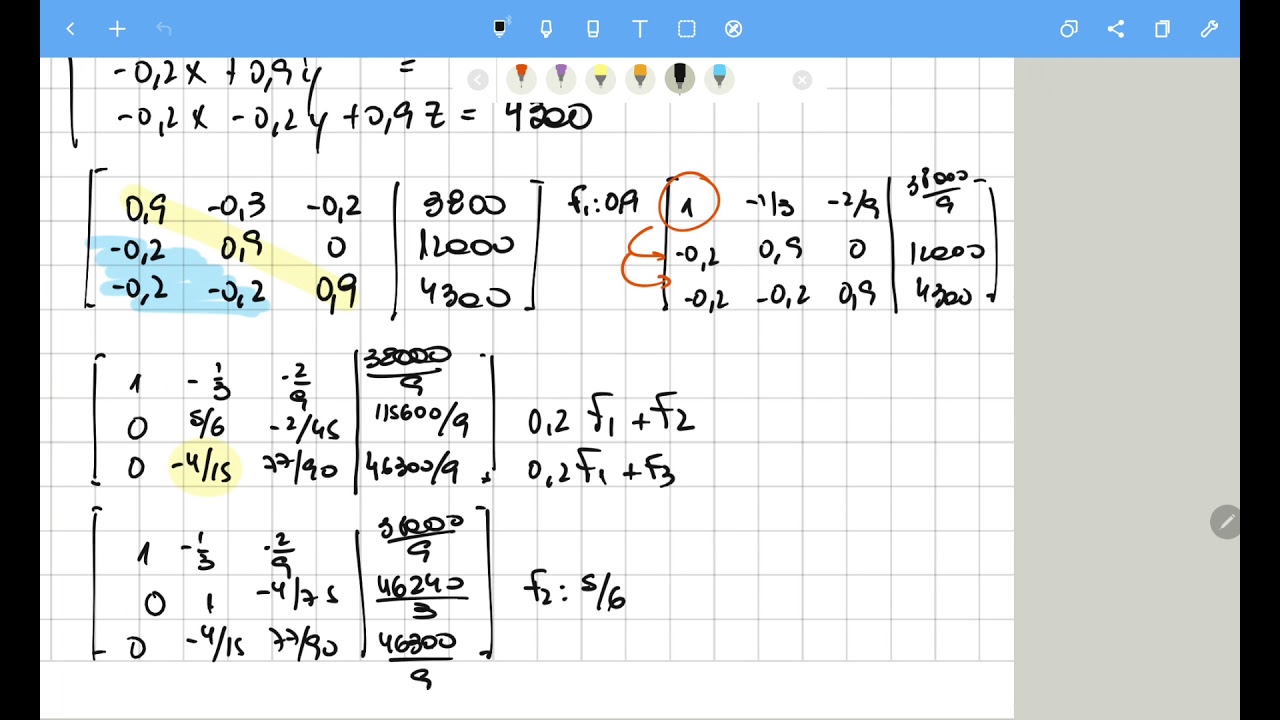 -0,2x + 0,9y =
-0,2x - 0,2y + 0,9z = 4300
0,9 -0,3 -0,2 | 3800
-0,2 0,9 0 | 12000
-0,2 -0,2 0,9 | 4300
f1:0,9
1 -1/3 -2/9 | 38000/9
-0,2 0,9 0 | 12000
-0,2 -0,2 0,9 | 4300
1 -1/3 -2/9 | 38000/9
0 5/6 -2/45 | 115600/9 0,2 f1 + f2
0 -4/15 77/90 | 46300/9 0,2 f1 + f3
1 -1/3 -2/9 | 38000/9
0 1 -4/75 | 46240/3 f2: 5/6
0 -4/15 77/90 | 46300/9